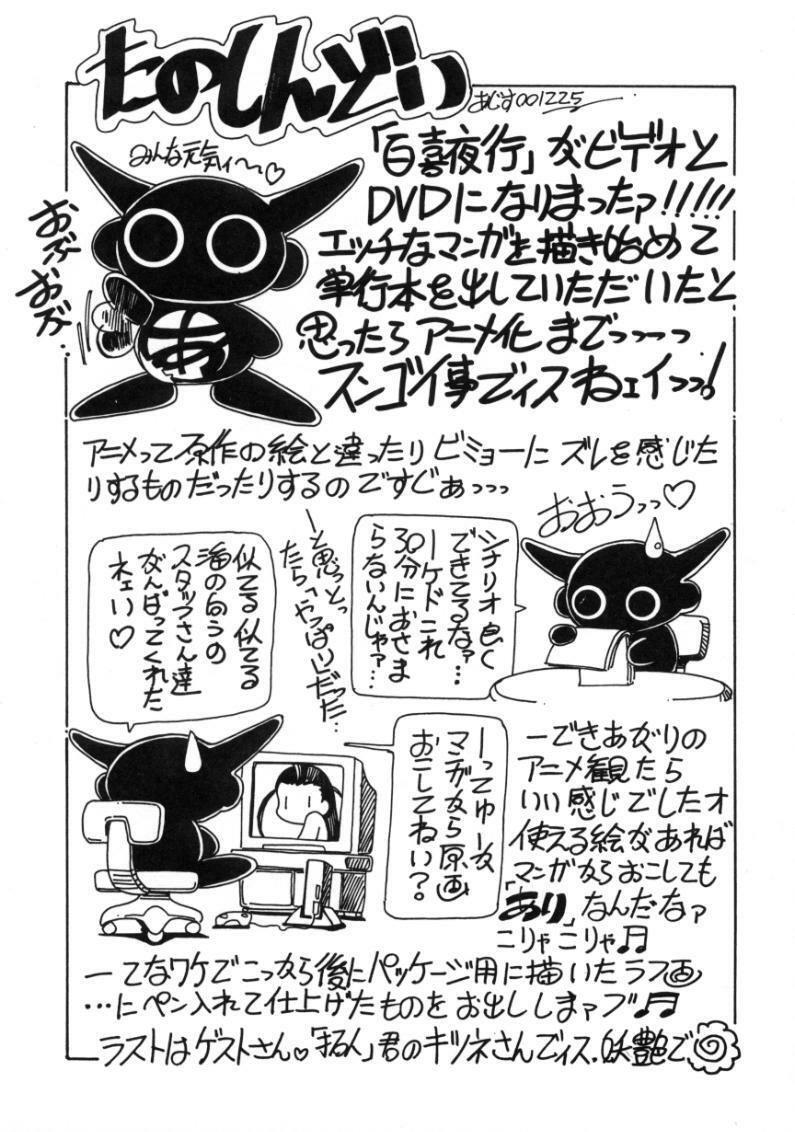 たのしんどい
あじす001225
みんな元気ィ〜〜♡
おぶ
おぶ…
「百喜夜行」がビデオと
DVDになりまったァ!!!!!
エッチなマンガを描き始めて
単行本を出していただいたと
思ったらアニメ化までっーっ
スンゴイ事でィスねェイっっ!
あ
アニメって原作の絵と違ったりビミョーにズレを感じた
りするものだったりするのですじぁっっっ
おおうっっ♡
シナリオ良く
できてるなァ…
ーケドこれ
30分におさま
らないんじゃァ…
ーと思っとっ
たら「やっぱし」だった…
似てる似てる
海の向うの
スタッフさん達
がんばってくれた
ネェい♡
ーってゆーか
マンガから原画
おこしてねい?。
ーできあがりの
アニメ観たら
いい感じでしたオ
使える絵があれば
マンガからおこしても
「あり」なんだなァ
こりゃこりゃ♬
ーてなワケでこっから後にパッケージ用に描いたラフ画
…にペン入れて仕上げたものをお出ししまァブ♬
ラストはゲストさん♡「まる人」君のキツネさんでィス.妖艶で